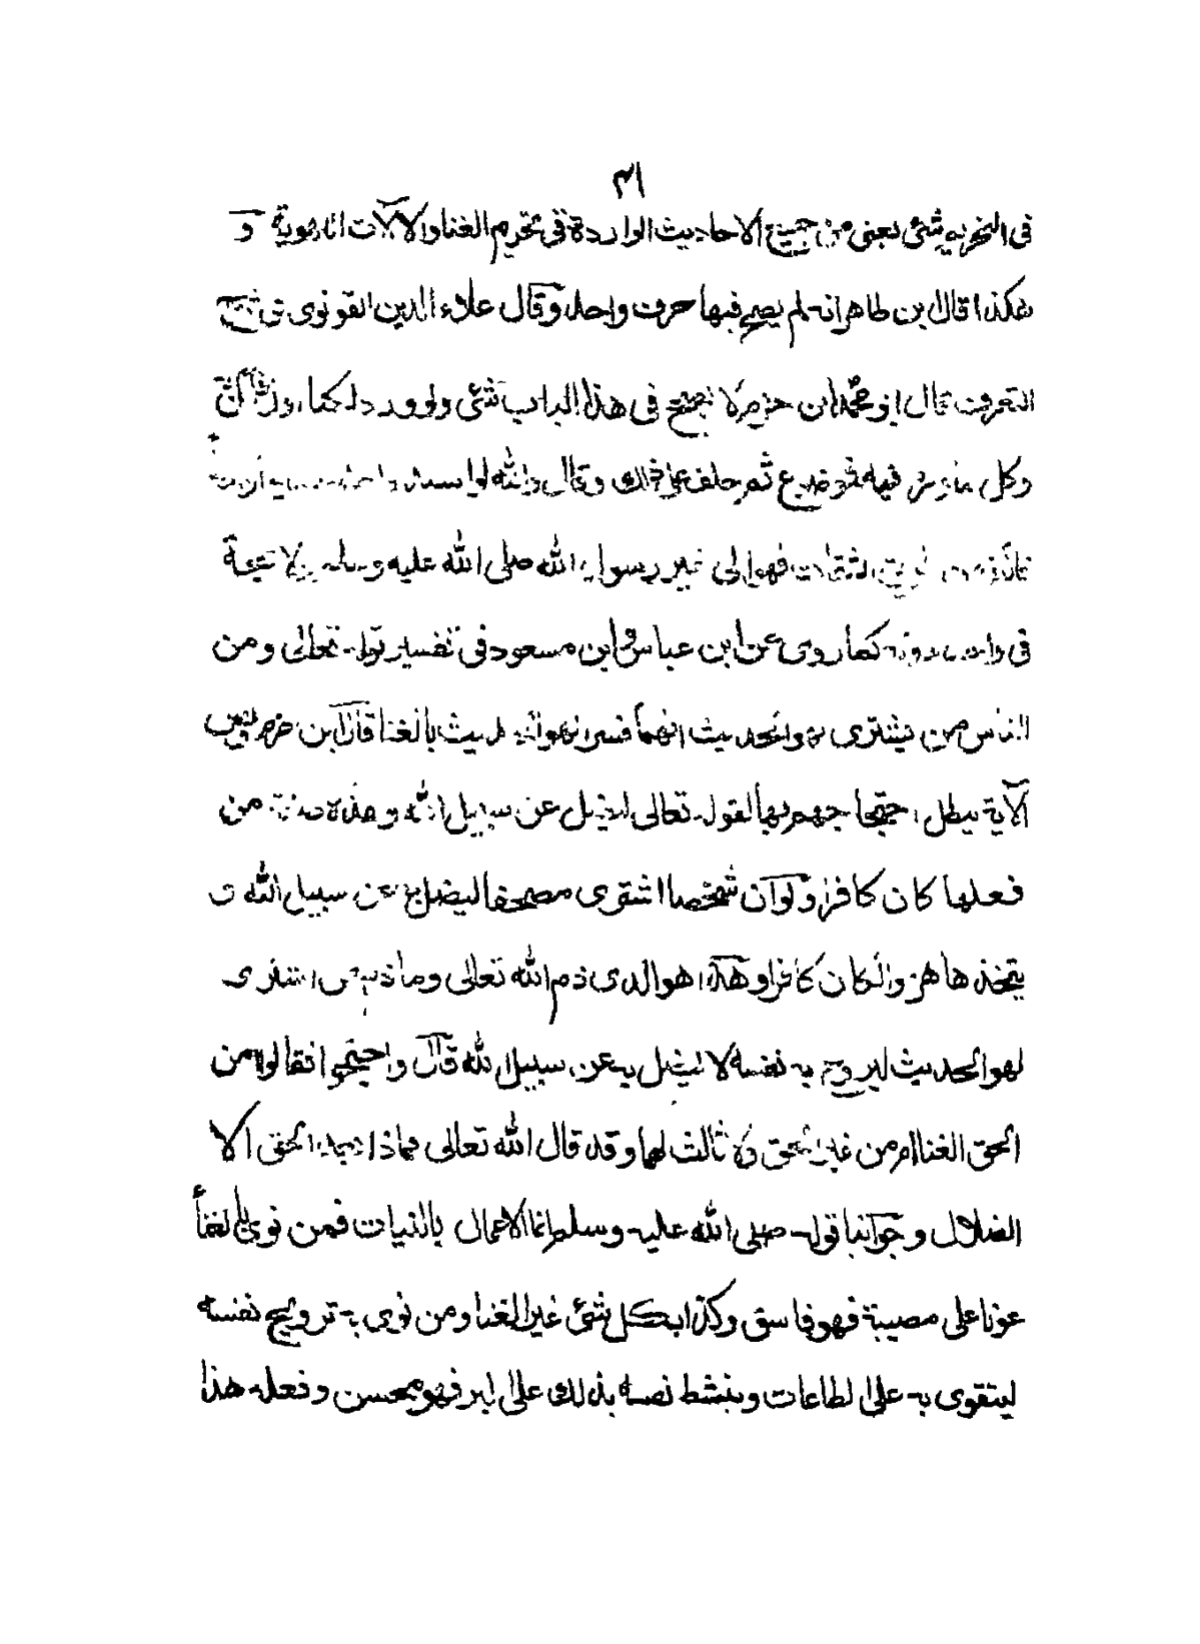 ٣١
فى التحريم شئى يعنى من جميع الاحاديث الواردة فى تحريم الغنا والآلات اللهوية و
هكذا قال ابن طاهر انه لم يصح فيها حرف واحد وقال علاء الدين القونوى فى شرح
التعرف قال ابو محمد ابن حزم لا يصح فى هذا الباب شئى ولوورد لكنا
وكل فيه موضوع ثم حلف على ذلك وقال والله لو اسند
الثقات فهو الى غير رسول الله صلى الله عليه وسلم ولا حجة
فى دونه كما روى عن ابن عباس وابن مسعود فى تفسير قوله تعالى ومن
الناس من يشترى لهو الحديث انهما فسرا لهو الحديث بالغنا قال ابن حزم نص
الآية يبطل احتجاجهم بها لقوله تعالى ليضل عن سبيل الله وهذه صفة من
فعلها كان كافرا ولو ان شخصا اشترى مصحفا ليضل به عن سبيل الله و
يتخذها هزوا لكان كافرا وهذا هو الذى ذم الله تعالى وما ذم من اشترى
لهو الحديث ليروح به نفسه لا ليضل به عن سبيل الله قال واحتجوا فقالوا من
الحق الغنا ام من غير الحق ولا ثالث لهما وقد قال الله تعالى فماذا بعد الحق الا
الضلال وجوابنا قوله صلى الله عليه وسلم انما الاعمال بالنيات فمن نوى بالغنا
عونا على مصيبة فهو فاسق وكذا بكل شئى غير الغنا ومن نوى به ترويح نفسه
ليتقوى به على الطاعات وينشط نفسه بذلك على البر فهو محسن وفعله هذا